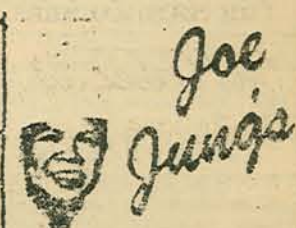 Joe
Jung's